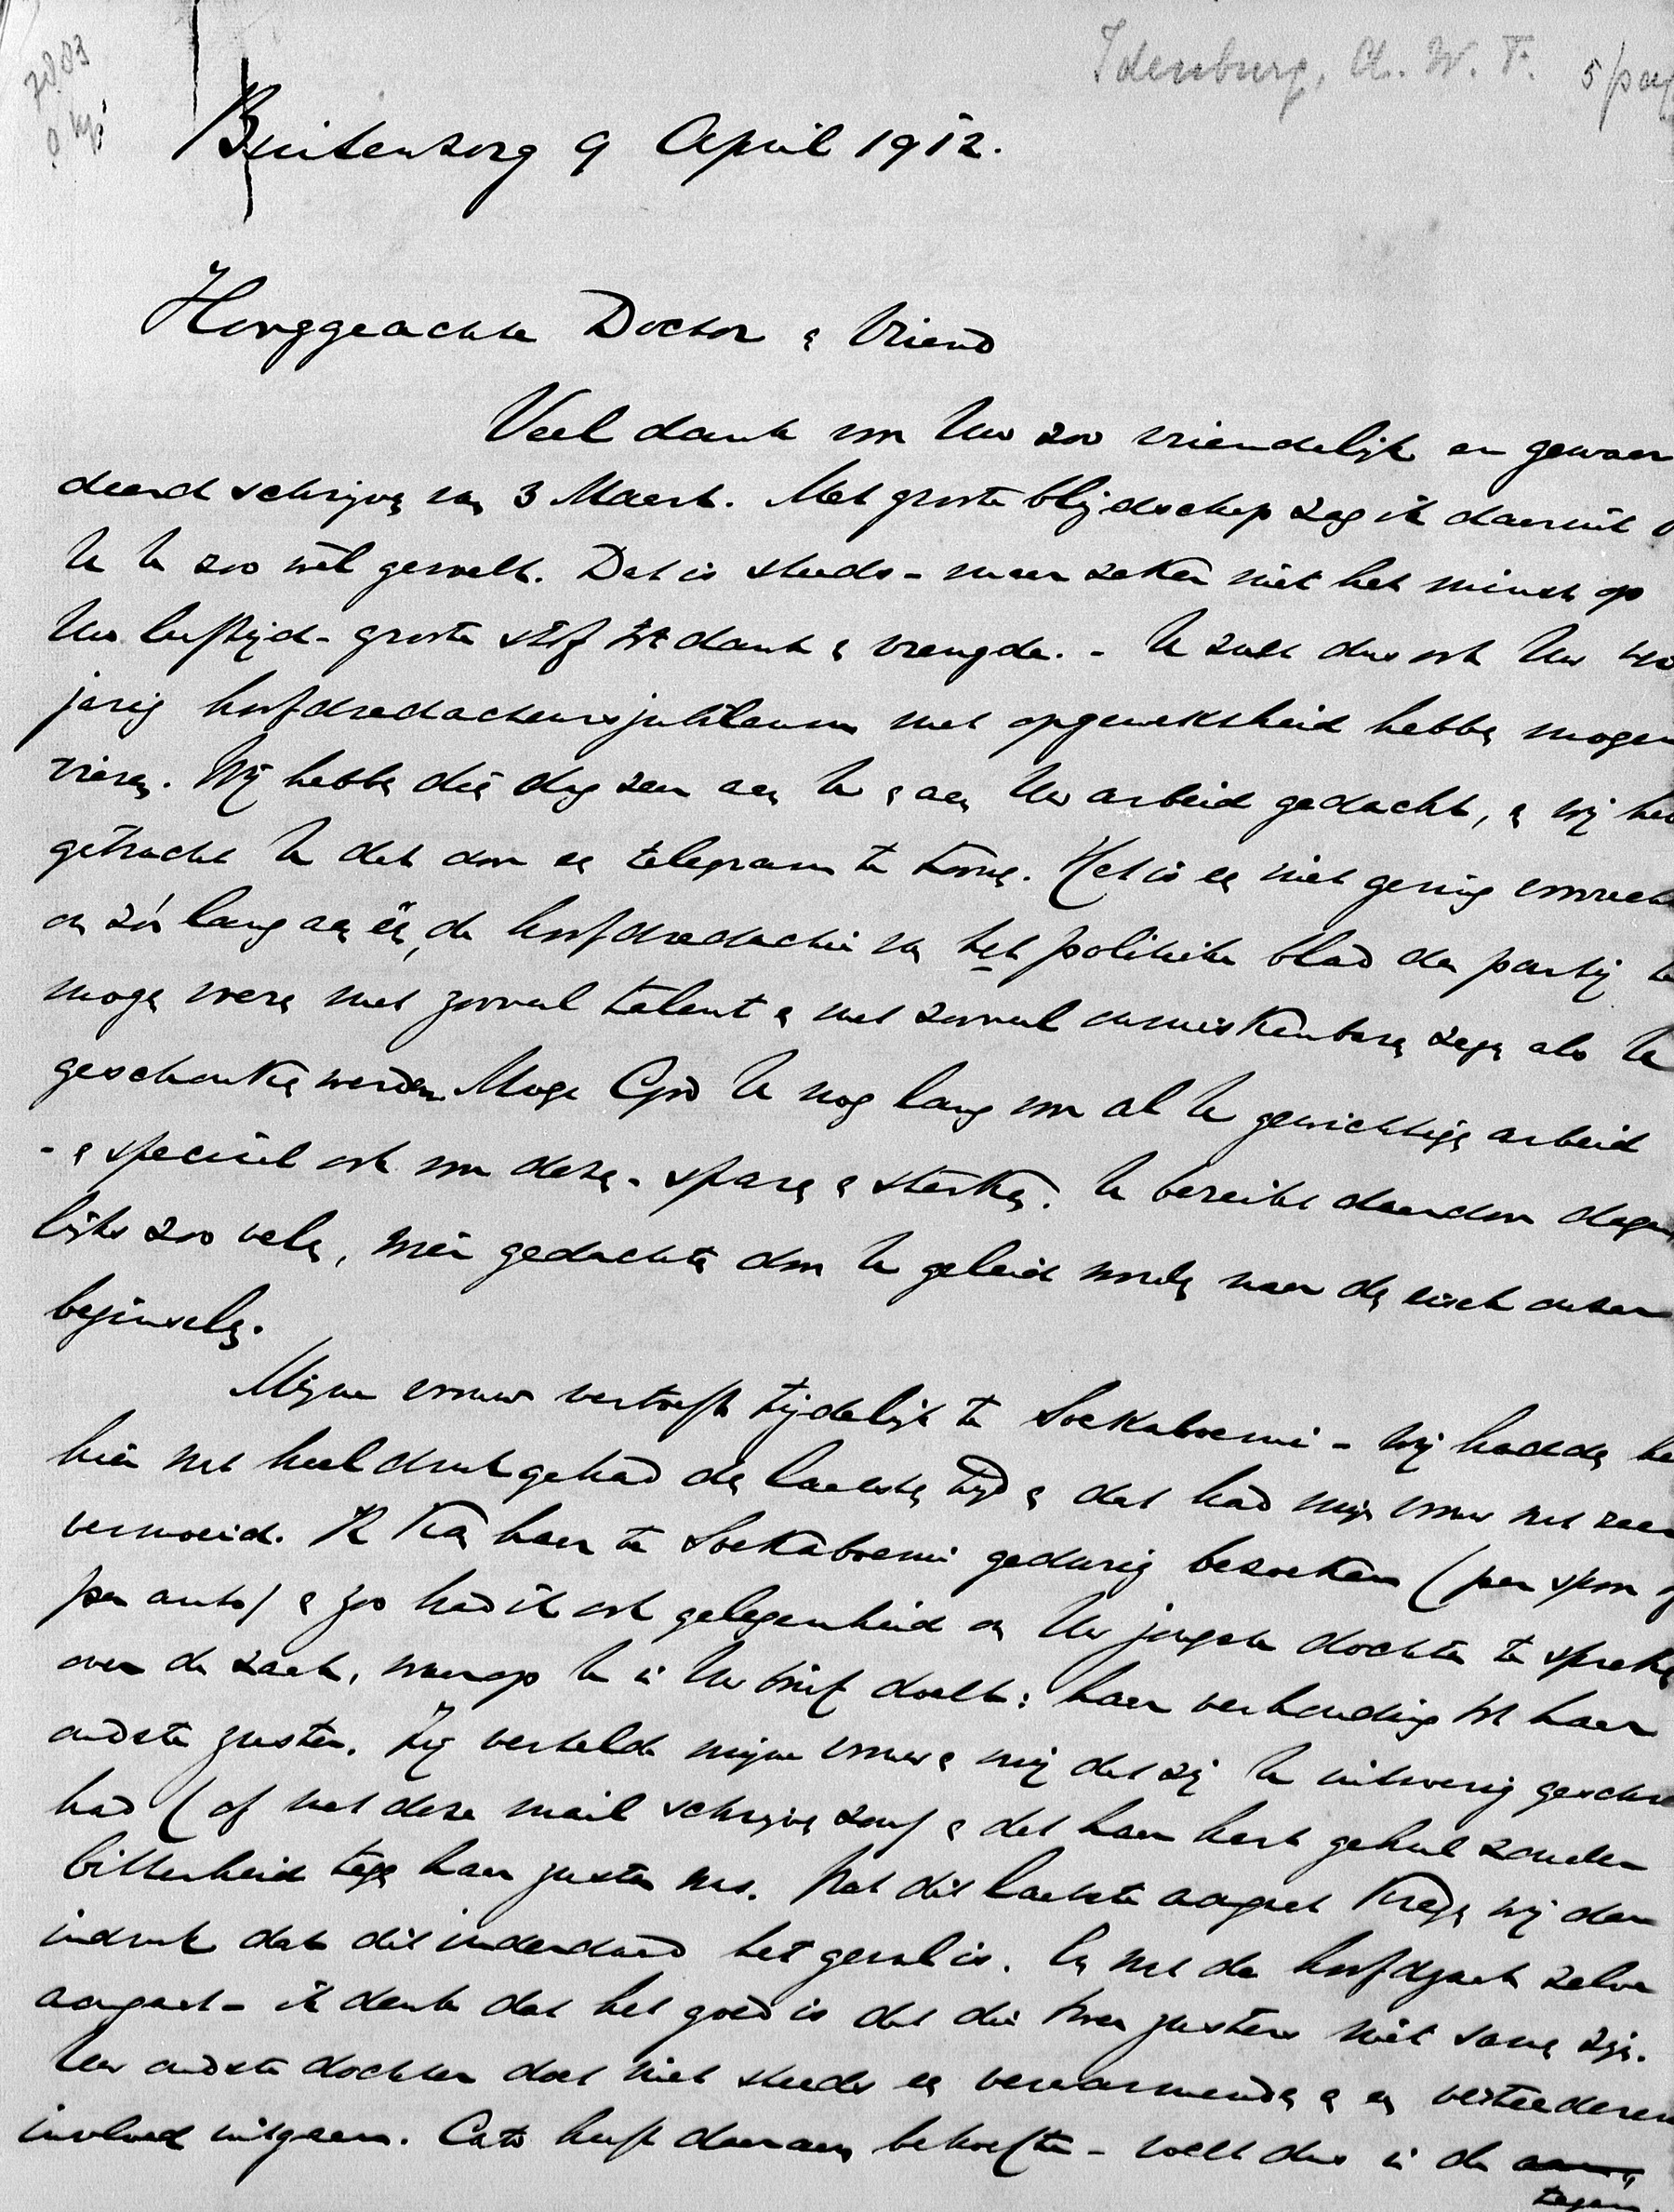 Idenburg, A. W. F. 5 pag
7803
Buitenzorg 9 April 1912.
Hooggeachte Doctor & Vriend
Veel dank voor Uw zoo vriendelijk en gewaar
deerd schrijven van 3 Maart. Met groote blijdschap zag ik daaruit
U zoo wèl gevoelt. Dat is steeds - maar zeker niet het minst op
Uw leeftijd - groote stof tot dank & vreugde. - U zult dus ook Uw 40
jarig hoofdredacteursjubileum met opgewektheid hebben mogen
vieren. Wij hebben dien dag zeer aan U & aan Uw arbeid gedacht, & wij
getracht U dat door een telegram te toonen. Het is een niet gering voorrecht
om zóó lang aan één, de hoofdredactie van het politieke blad der partij
mogen voeren met zooveel talent & met zooveel onmiskenbaren zegen als U
geschonken werden. Moge God U nog lang voor al Uw gewichtigen arbeid
- & speciaal ook voor dezen - sparen & sterken. U bereikt daardoor dage
lijks zoo velen, wier gedachten door U geleid worden naar den eisch onzer
beginselen.
Mijne vrouw vertoeft tijdelijk te Soekaboemi - Wij hadden
hier het heel druk gehad den laatsten tijd & dat had mijn vrouw wat zeer
vermoeid. Ik kan haar te Soekaboemi gedurig bezoeken (per spoor of
per auto) & zoo had ik ook gelegenheid om Uw jongste dochter te spreken
over de zaak, waarop U in Uw brief doelt: haar verhouding tot haar
oudste zuster. Zij vertelde mijne vrouw & mij dat zij U uitvoerig geschre
had (of met deze mail schrijven zou) & dat haar hart geheel zonder
bitterheid tegen haar zuster was. Wat dit laatste aangaat kregen wij den
indruk dat dit inderdaad het geval is. En wat de hoofdzaak zelve
aangaat - ik denk dat het goed is dat die twee zusters niet samen zijn.
Uw oudste dochter doet niet steeds een verwarmenden & een verteederen
invloed uitgaan. Cato heeft daaraan behoefte - voelt dus in de
tegen